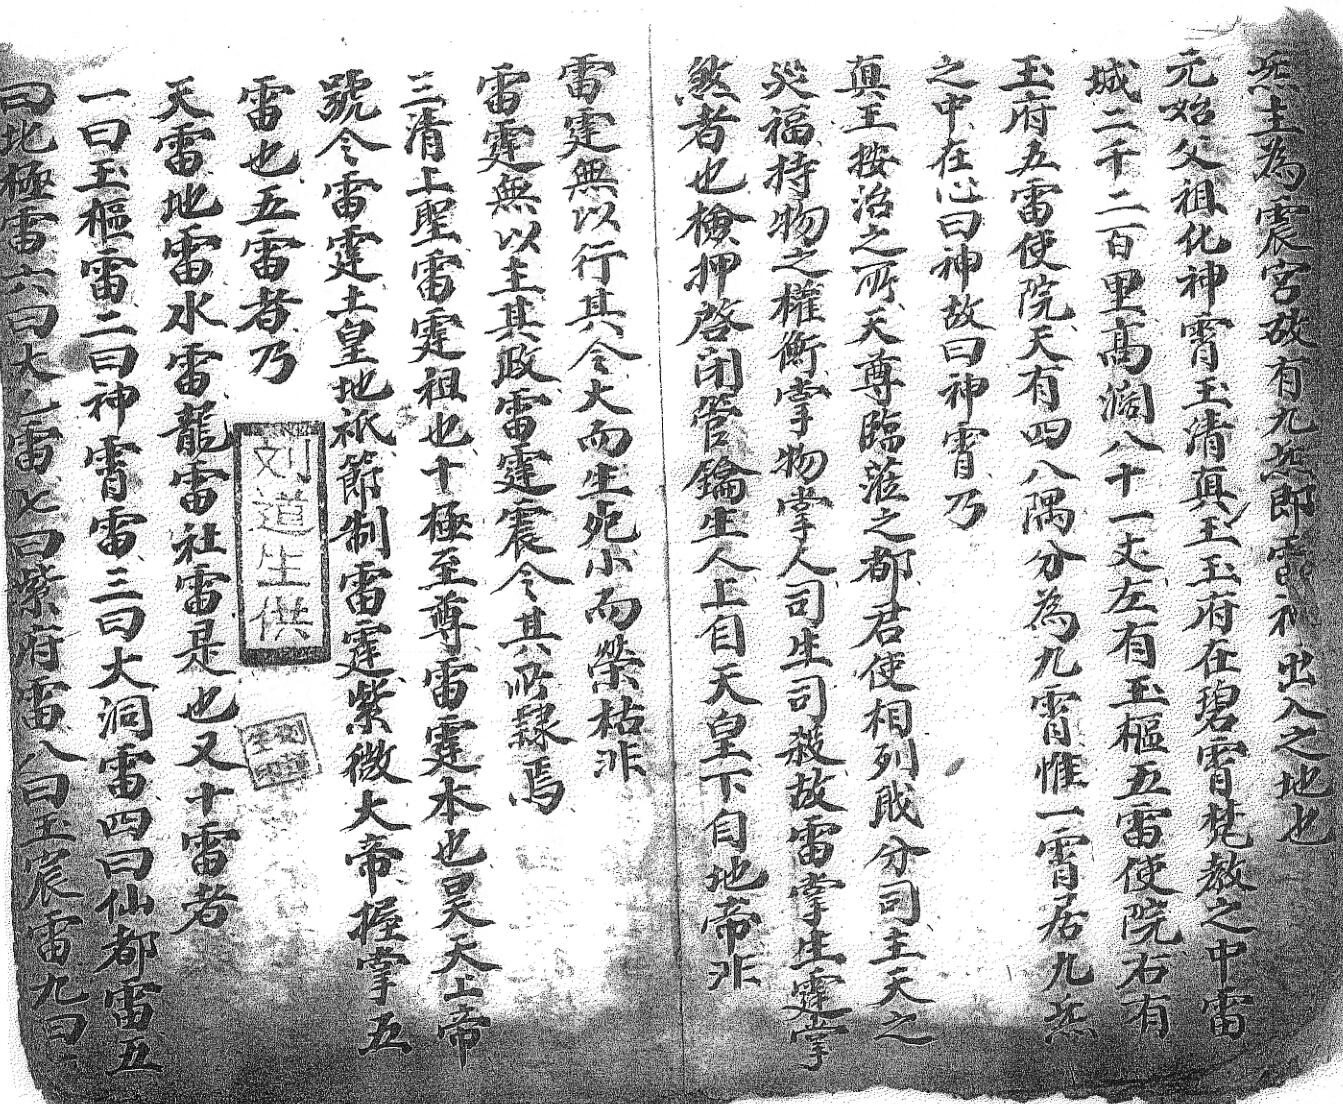 炁主為震宮故有九炁即雷神出入之地也
元始父祖化神霄玉清真王玉府在碧霄梵教之中雷
城二千二百里高濶八十一丈左有玉樞五雷使院右有
玉府五雷使院天有四八隅分為九霄惟一霄居九炁
之中在心曰神故曰神霄乃
真王按治之所天尊臨蒞之都君使相列戝分司主天之
災福持物之權衡掌物掌人司生司殺故雷掌生霆掌
煞者也檢押啓闭管鑰生人上自天皇下自地帝非
雷霆無以行其令大而生死小而榮枯非
雷霆無以主其政雷霆震令其所隸焉
三清上聖雷霆祖也十極至尊雷霆本也昊天上帝
號令雷霆土皇地祇節制雷霆紫微大帝握掌五
雷也五雷者乃
天雷地雷水雷龍雷社雷是也又十雷者
一曰玉樞雷二曰神霄雷三曰大洞雷四曰仙都雷五
曰北極雷六曰太乙雷七曰紫府雷八曰玉宸雷九曰
刘道生供